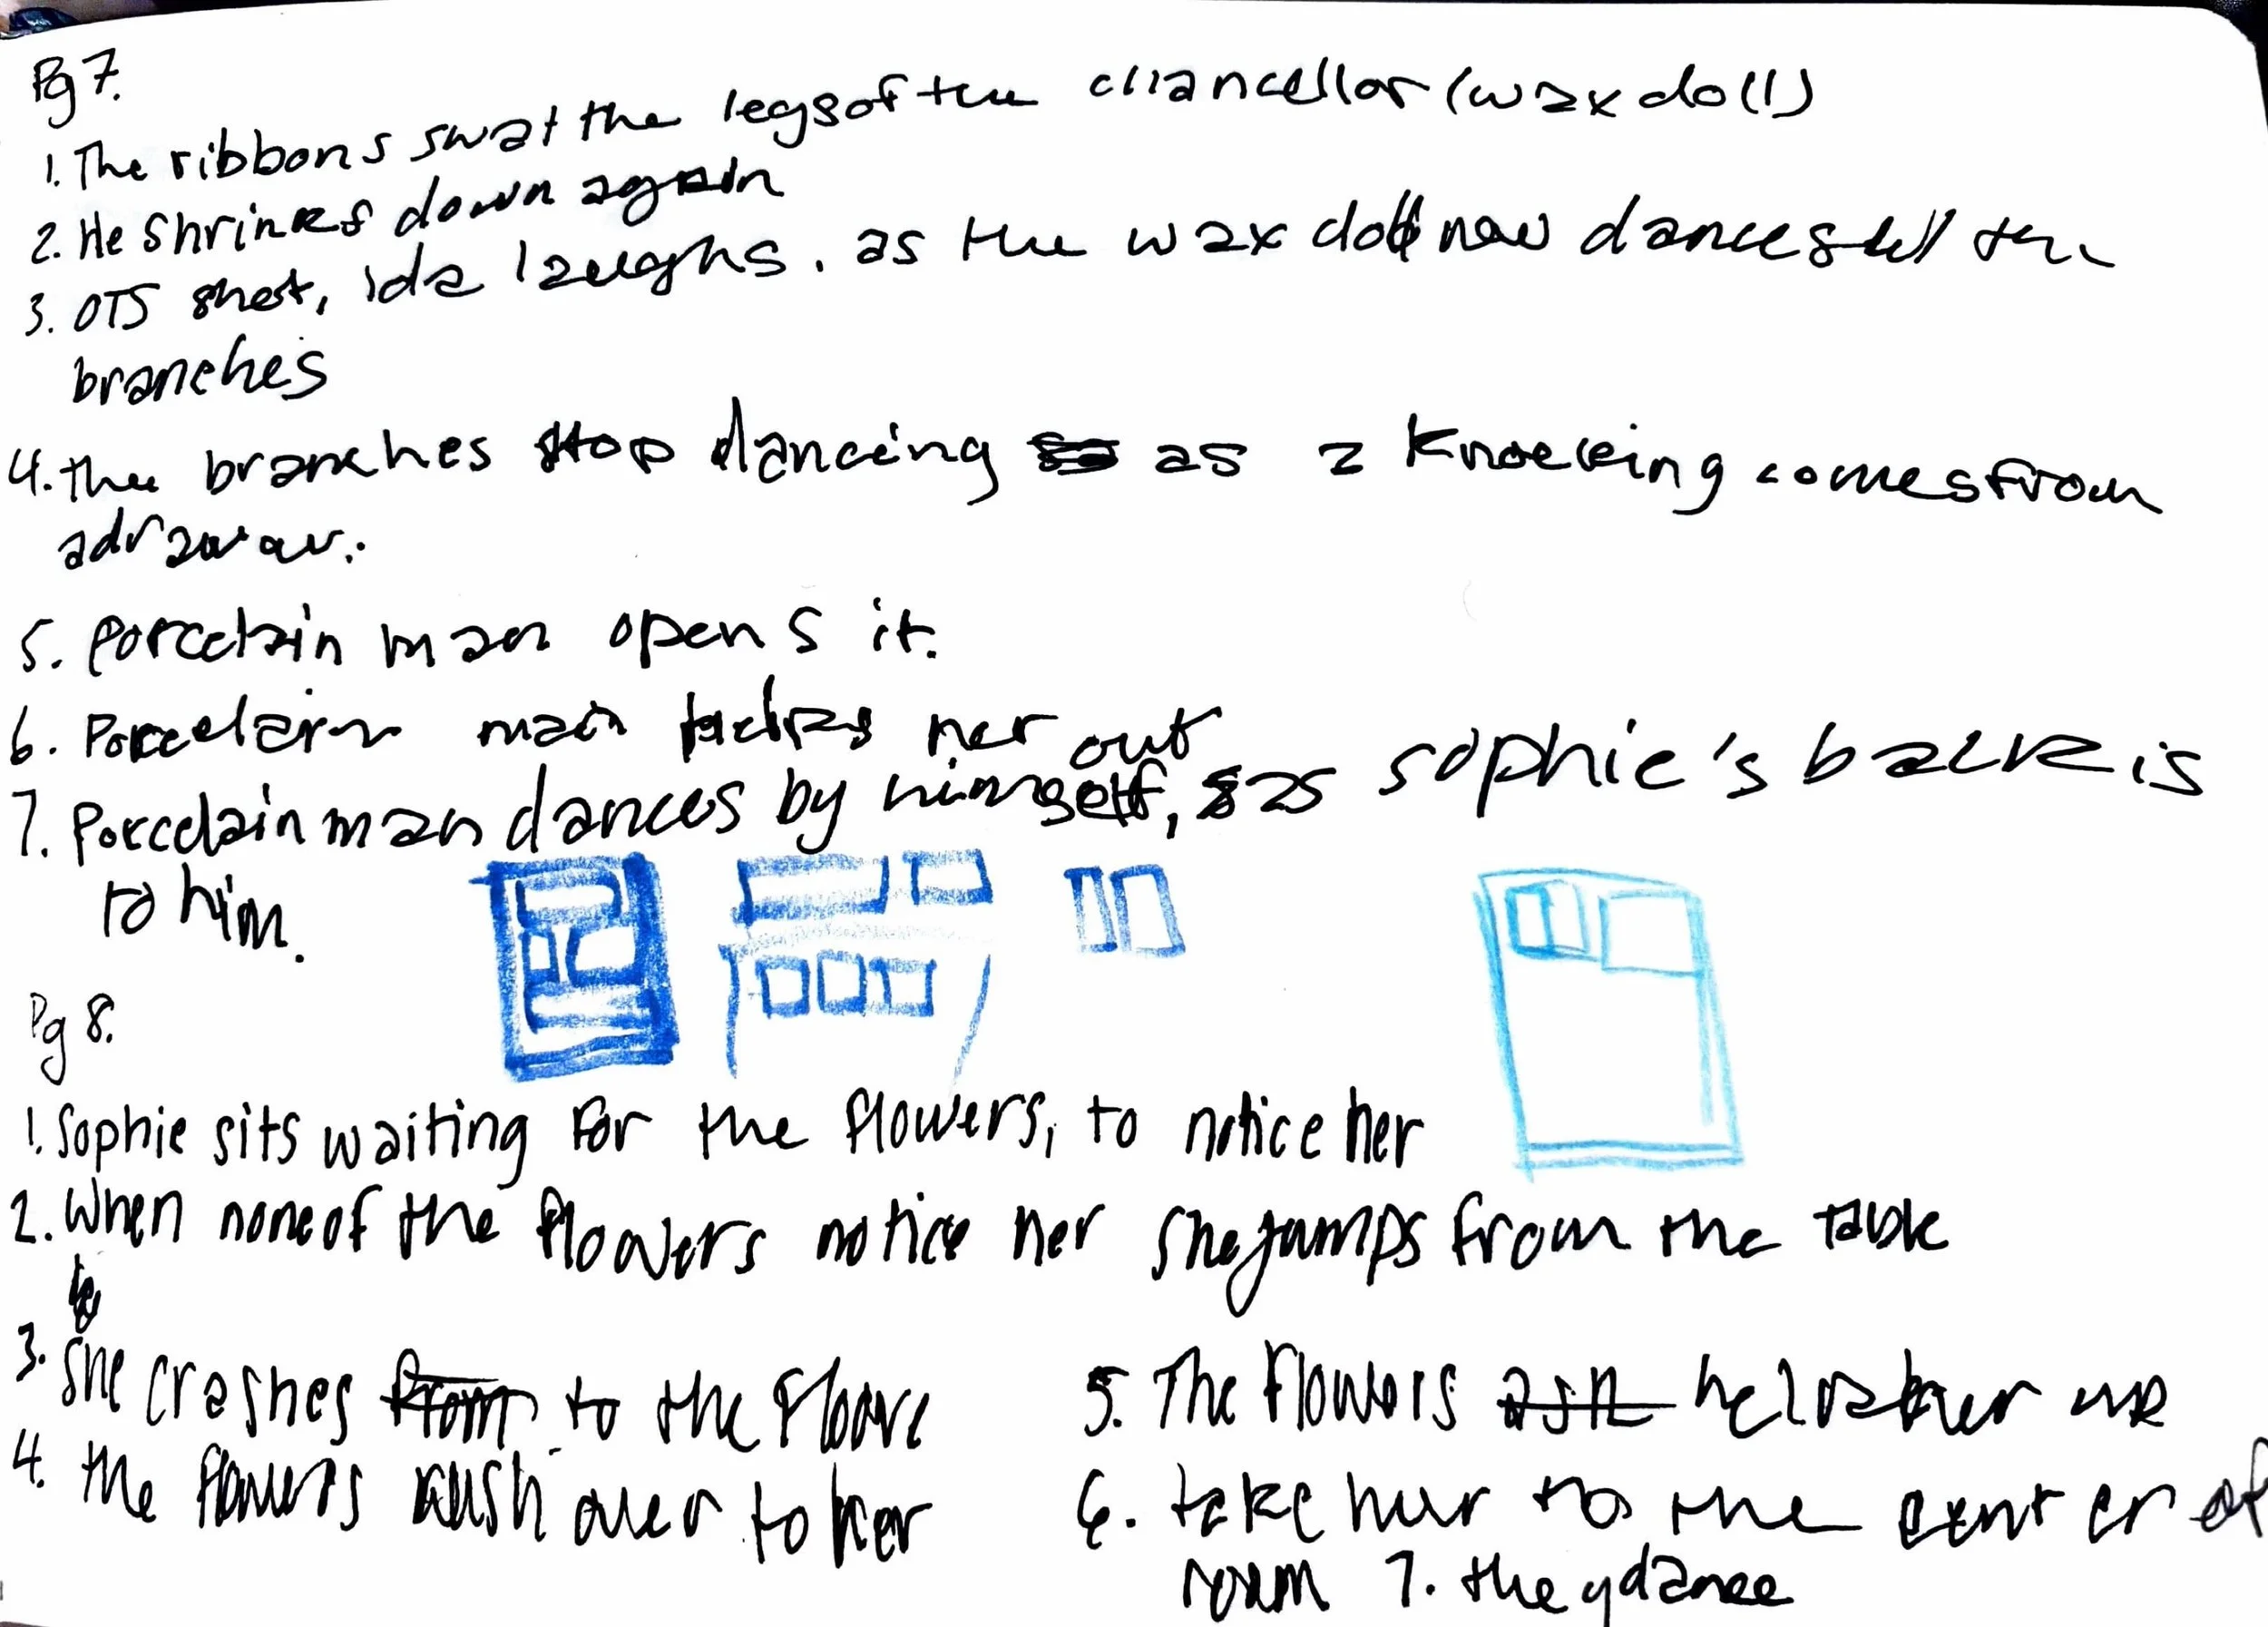 Pg 7.
1. The ribbons swat the legs of the chancellor (wax doll)
2. He shrinks down again
3. OTS shot, ida laughs. as the wax doll now dances w/ the
branches
4. the branches stop dancing as a Knocking comes from
a drawer.
5. Porcelain man opens it.
6. Porcelain man helps her out
7. Porcelain man dances by himself, as sophie's back is
to him.
Pg 8.
1. Sophie sits waiting for the flowers, to notice her
2. When none of the flowers notice her she jumps from the table
3. She crashes to the floore
4. the flowers rush over to her
5. The flowers helps her up
6. take her to the center of
room 7. they dance